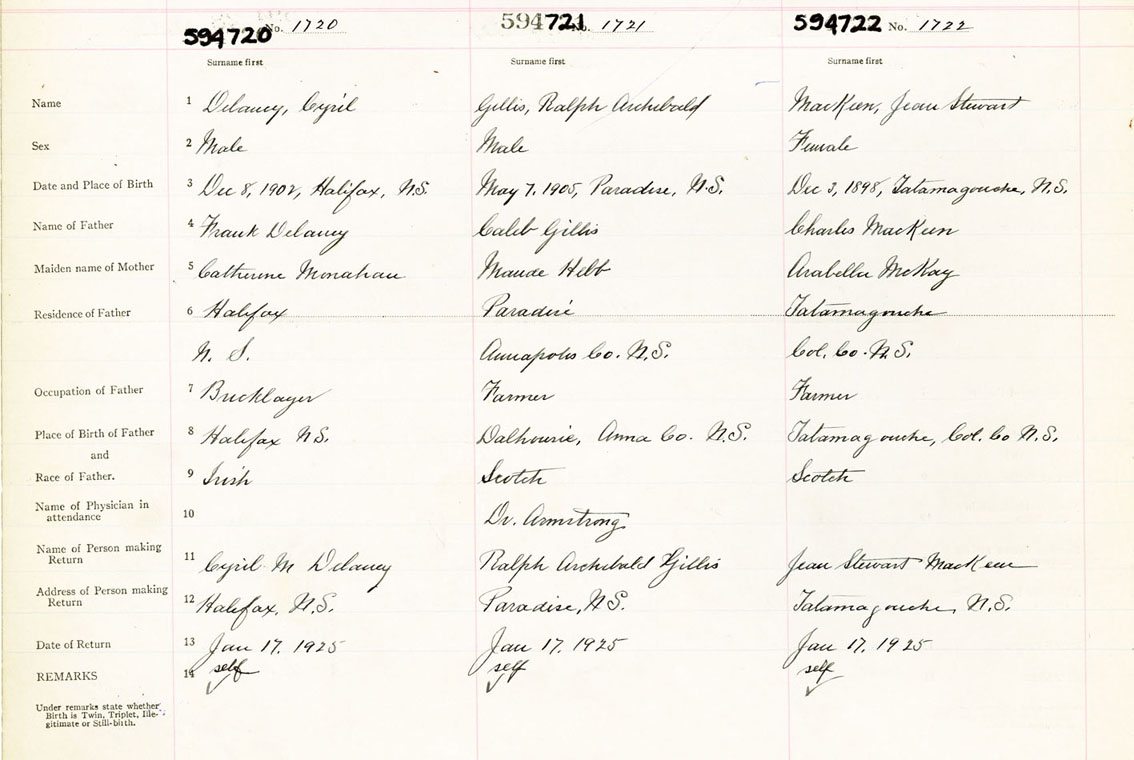 594720 No. 1720 594721 No. 1721 594722 No. 1722
Surname first Surname first Surname first
Name 1 Delaney, Cyril Gillis, Ralph Archibald MacKeen, Jean Stewart
Sex 2 Male Male Female
Date and Place of Birth 3 Dec 8, 1902, Halifax, N.S. May 7, 1905, Paradise, N.S. Dec 3, 1898, Tatamagouche, N.S.
Name of Father 4 Frank Delaney Caleb Gillis Charles MacKeen
Maiden name of Mother 5 Catherine Monahan Maude Hebb Arabella McKay
Residence of Father 6 Halifax Paradise Tatamagouche
N. S. Annapolis Co. N.S. Col. Co. N.S.
Occupation of Father 7 Bricklayer Farmer Farmer
Place of Birth of Father 8 Halifax N.S. Dalhousie, Anna Co. N.S. Tatamagouche, Col. Co N.S.
and
Race of Father. 9 Irish Scotch Scotch
Name of Physician in
attendance 10 Dr. Armstrong
Name of Person making
Return 11 Cyril M Delaney Ralph Archibald Gillis Jean Stewart MacKeen
Address of Person making
Return 12 Halifax, N.S. Paradise, N.S. Tatamagouche, N.S.
Date of Return 13 Jan 17, 1925 Jan 17, 1925 Jan 17, 1925
REMARKS 14 self self self
Under remarks state whether
Birth is Twin, Triplet, Ille-
gitimate or Still-birth.